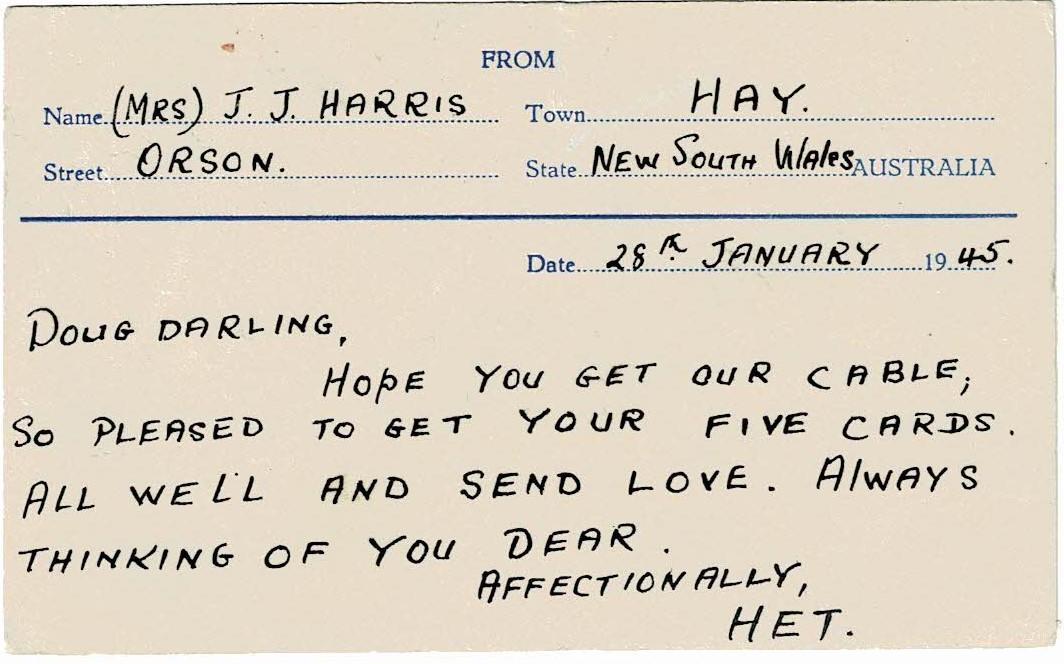 FROM
Name (MRS) J. J. HARRIS Town HAY.
Street ORSON. State NEW SOUTH WAleS AUSTRALIA
Date 28th JANUARY 1945.
DOUG DARLING,
HOPE YOU GET OUR CABLE,
SO PLEASED TO GET YOUR FIVE CARDS.
ALL WELL AND SEND LOVE. AlWAYS
THINKING OF YOU DEAR.
AFFECTIONALLY,
HET.